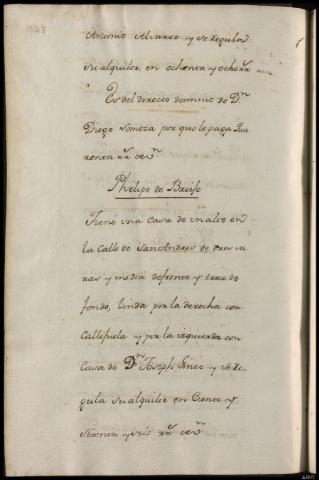 Antonio Alvarez y se regula
su alquiler en ochenta y ocho rr
Es del directo dominio de Dn
Diego Somoza por que le paga qua
renta rr de vn
Phelipe de Breijo
Tiene una Casa de un alto en
la Calle de San Andres de tres va
ras y media de frente y trece de
fondo, linda por la derecha con
Callejuela y por la izquierda con
Casa de Dn Joseph y se re-
gula su alquiler en Ciento y
setenta y seis rr de vn